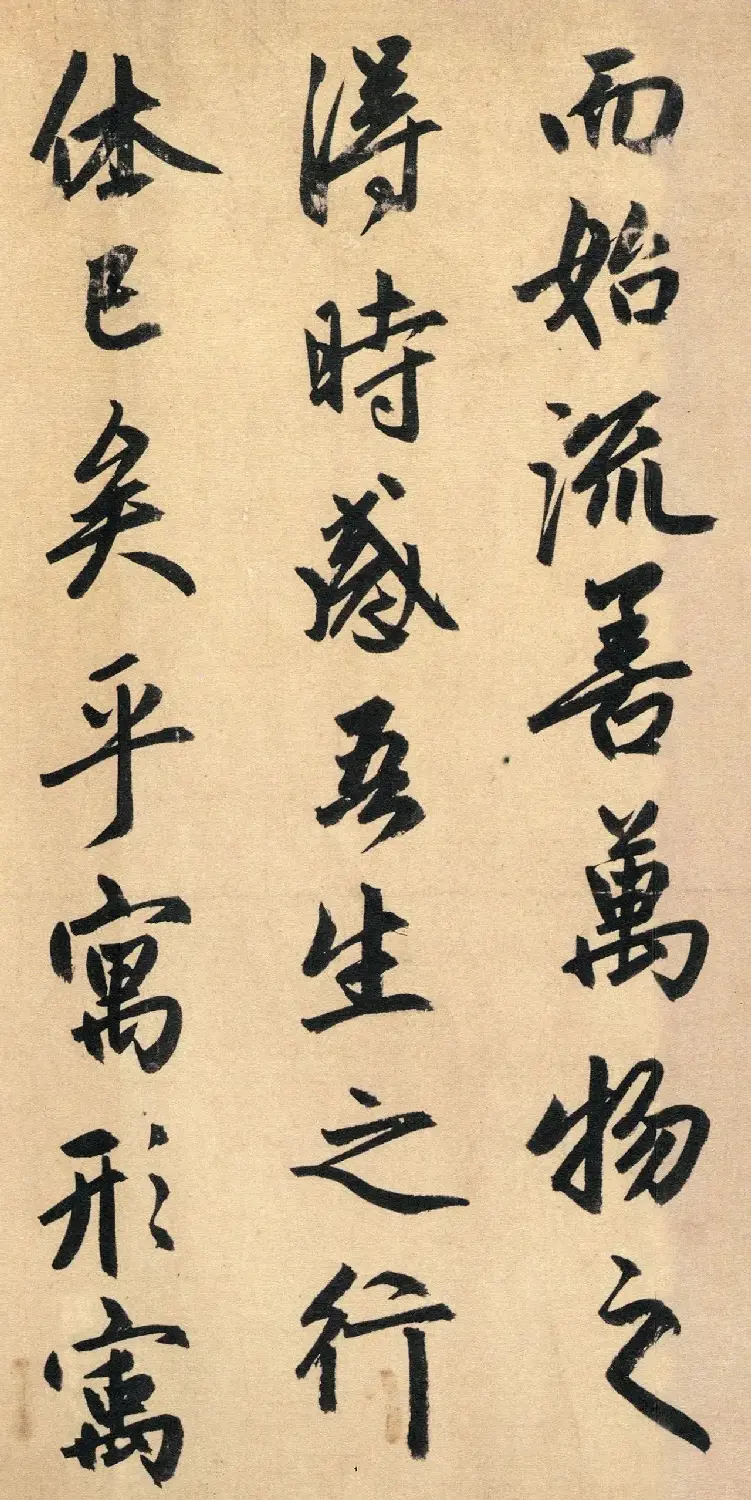 而始流善萬物之
得時感吾生之行
休已矣乎寓形寓